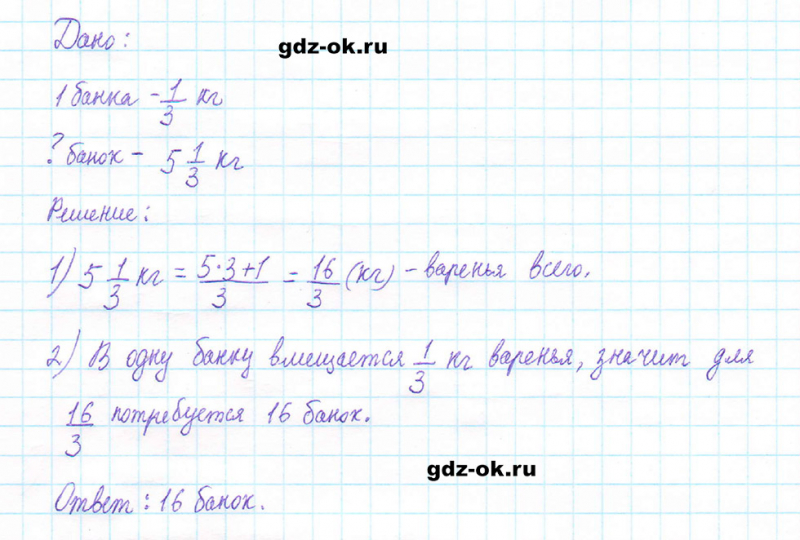 Дано:
gdz-ok.ru
1 банка - 1/3 кг
? банок - 5 1/3 кг
Решение:
1) 5 1/3 кг = (5·3+1)/3 = 16/3 (кг) - варенья всего.
2) В одну банку вмещается 1/3 кг варенья, значит для
16/3 потребуется 16 банок.
gdz-ok.ru
Ответ: 16 банок.